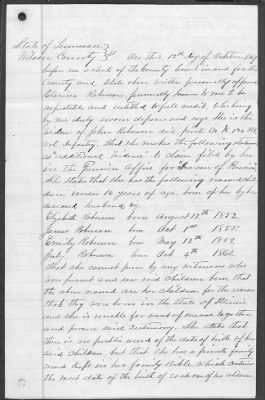 State of Tennessee
Wilson County SS On this 12th day of October 1867
before me clerk of the County Court in and for the
County and State above written personally appeared
Clarissa Robinson personally known to me to be
respectable and entitled to full credit. Who being
by me duly sworn deposes and says She is the
widow of John Robinson dec.
Vol. Infantry. That she makes the following
additional Evidence to claim filed by her
in the Pension Office for Increase of Pension
She states that she has the following named chil
dren under 16 years of age, born of her by her
deceased husband viz
Elizabeth Robinson born August 17th 1852.
James Robinson born Oct 1st 1855.
Emily Robinson born May 12th 1858.
July Robinson born Oct 4th 1860.
That she cannot prove by any witnesses who
are present and saw said children born that
the above named are her children for the reason
that they were born in the State of Illinois
and she is unable for want of means to go there
and procure said testimony. She states that
there is no public record of the date of birth of her
said children, but that she has a private family
record kept in her family Bible, which contains
the exact date of the birth of each one of her children